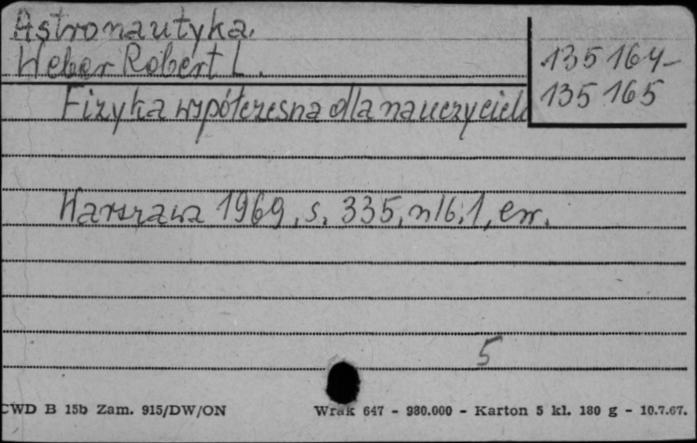 Astronautyka.
Weber Robert L.
135 164-
135 165
Fizyka współczesna dla nauczycieli
Warszawa 1969, s. 335, nlb. 1, err.
5
CWD B 15b Zam. 915/DW/ON
Wrak 647 - 980.000 - Karton 5 kl. 180 g - 10.7.67.